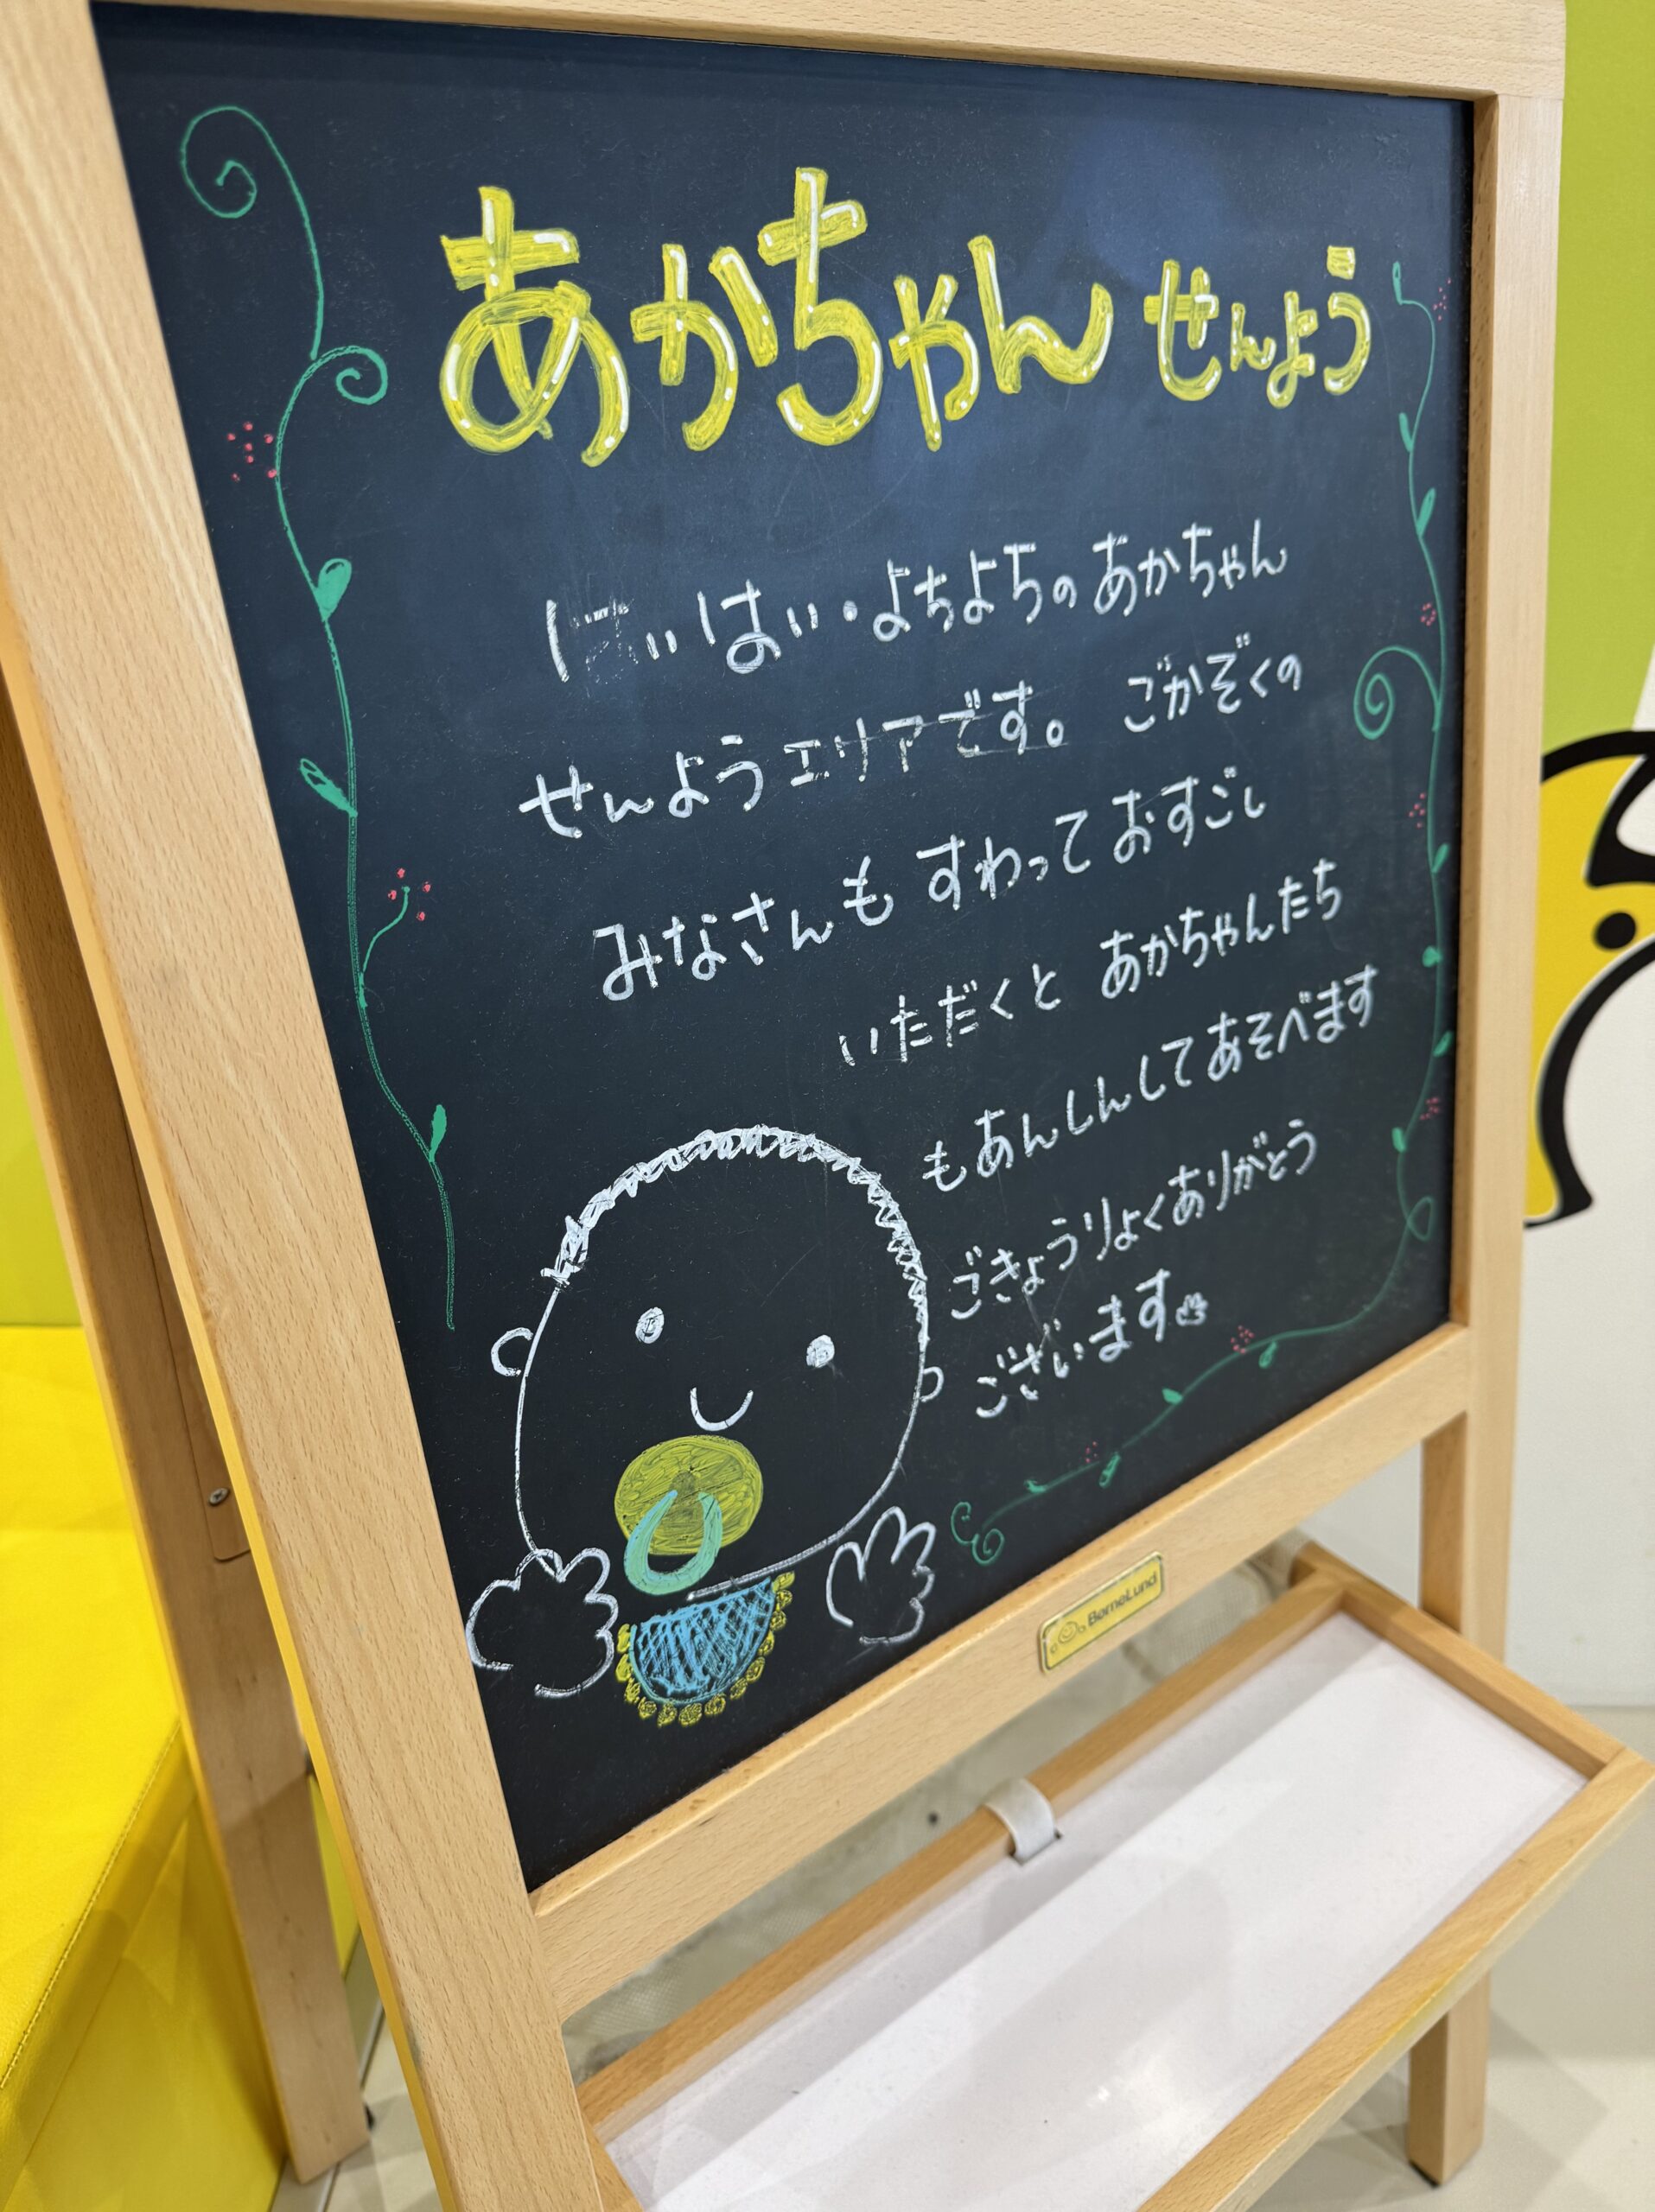 あかちゃん せんよう
はいはい・よちよちの あかちゃん
せんようエリアです。 ごかぞくの
みなさんも すわって おすごし
いただくと あかちゃんたち
もあんしんしてあそべます
ごきょうりょくありがとう
ございます
BørneLund